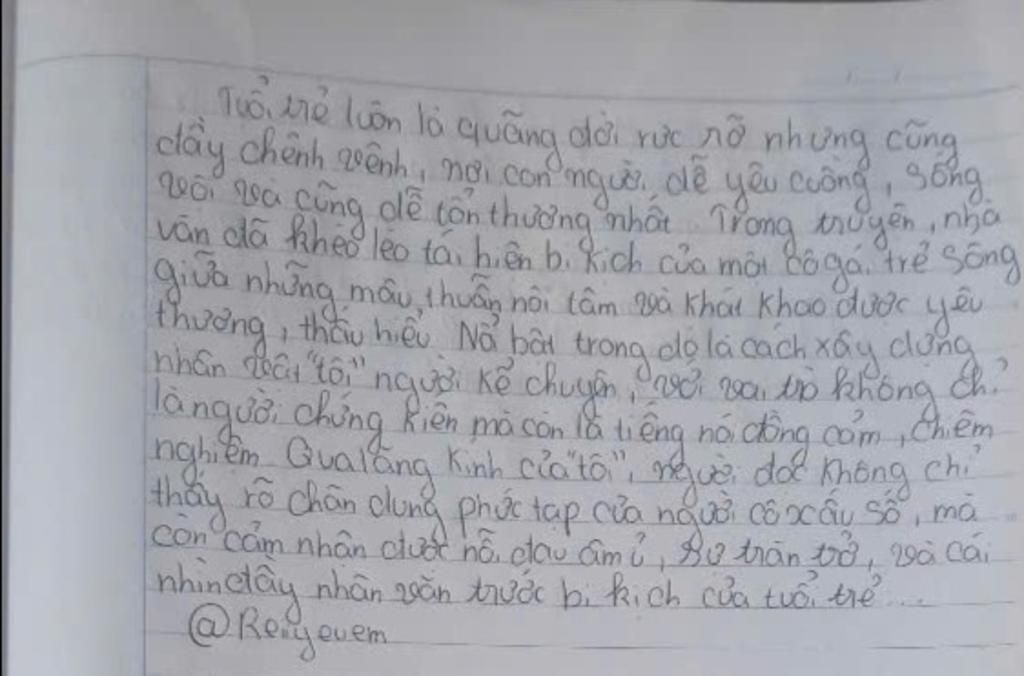 Tuổi trẻ luôn là quãng đời rực rỡ nhưng cũng
đầy chênh vênh, nơi con người dễ yêu cuồng, sống
vội và cũng dễ tổn thương nhất. Trong truyện, nhà
văn đã khéo léo tái hiện bi kịch của một cô gái trẻ sống
giữa những mâu thuẫn nội tâm và khát khao được yêu
thương, thấu hiểu. Nổi bật trong đó là cách xây dựng
nhân vật "tôi" người kể chuyện, với vai trò không chỉ
là người chứng kiến mà còn là tiếng nói đồng cảm, chiêm
nghiệm. Qua lăng kính của "tôi", người đọc không chỉ
thấy rõ chân dung phức tạp của người cô xấu số, mà
còn cảm nhận được nỗi đau âm ỉ, sự trăn trở, và cái
nhìn đầy nhân văn trước bi kịch của tuổi trẻ...
@Reiyeuem